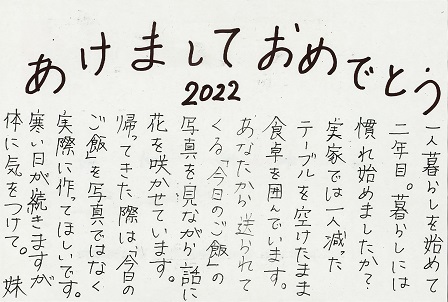 あけましておめでとう
2022
一人暮らしを始めて
二年目。暮らしには
慣れ始めましたか？
実家では一人減った
テーブルを空けたまま
食卓を囲んでいます。
あなたから送られて
くる「今日のご飯」の
写真を見ながら話に
花を咲かせています。
帰ってきた際は「今日の
ご飯」を写真ではなく
実際に作ってほしいです。
寒い日が続きますが
体に気をつけて。 妹